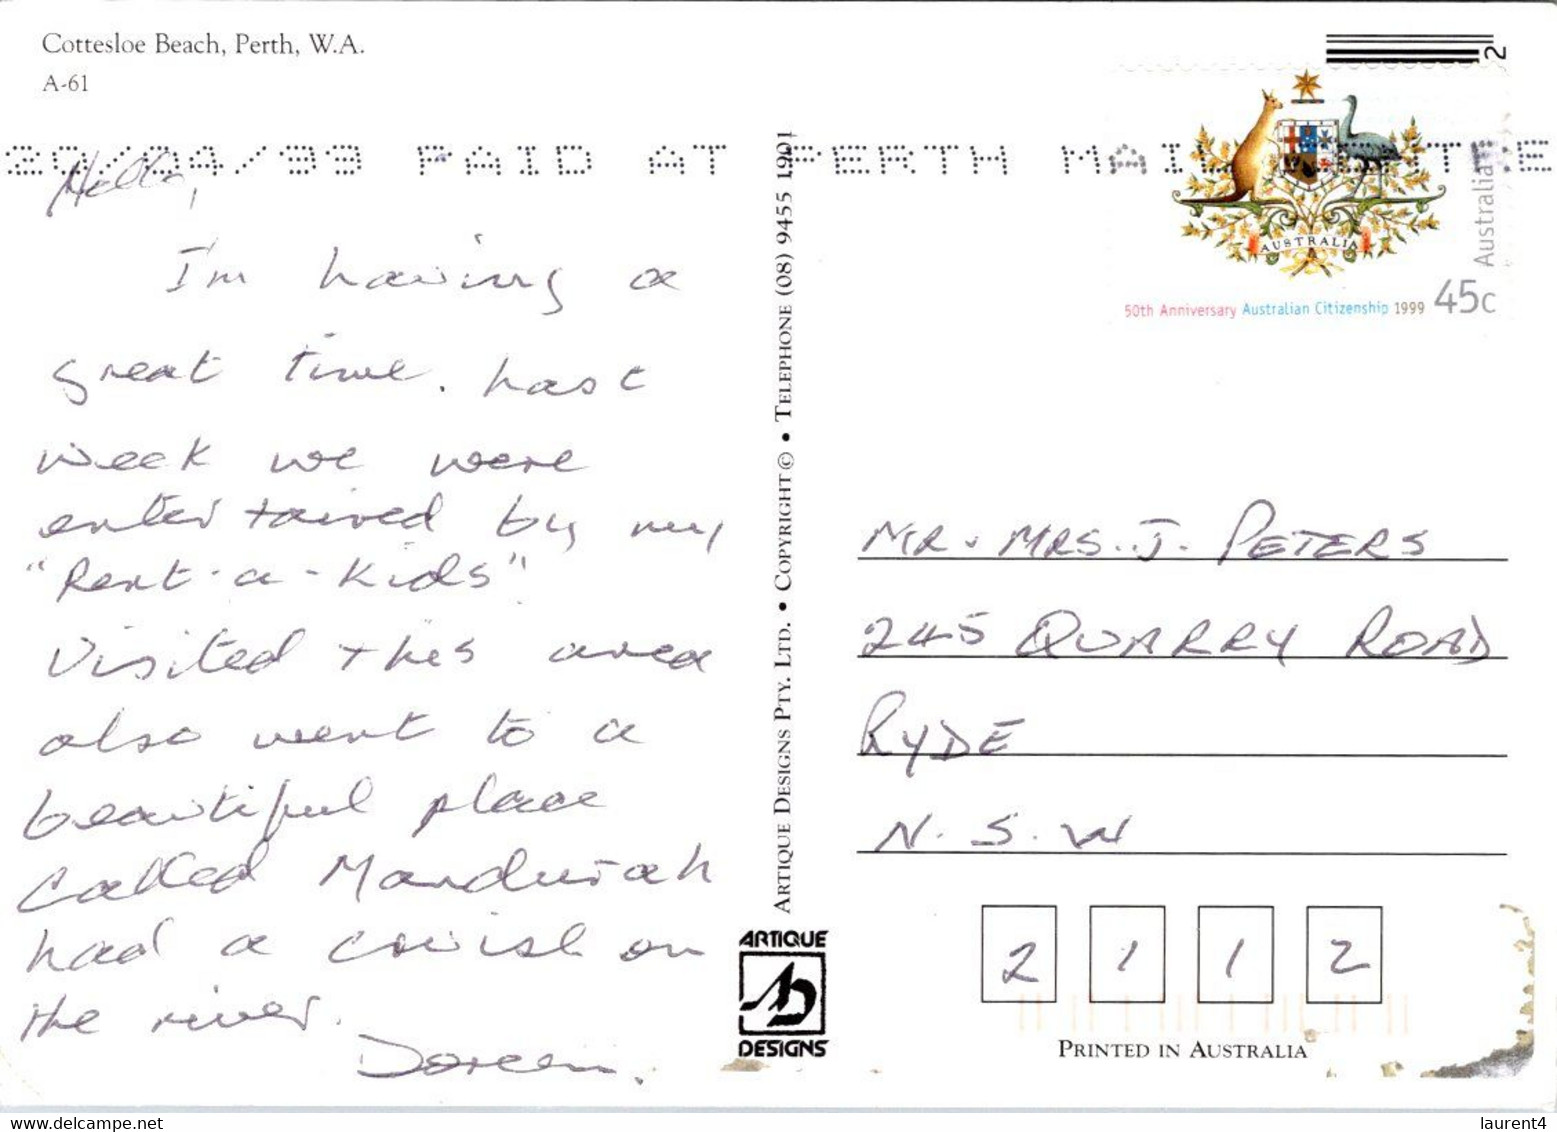 Cottesloe Beach, Perth, W.A.
A-61
20/04/99 PAID AT PERTH MAIL CENTRE
2
AUSTRALIA
Australia
50th Anniversary Australian Citizenship 1999 45c
Hello,
I'm having a
great time. Last
week we were
entertained by my
"Rent-a-Kids"
Visited this area
also went to a
beautiful place
called Mandurah
had a cruise on
the river.
Doreen.
ARTIQUE DESIGNS PTY. LTD. • COPYRIGHT © • TELEPHONE (08) 9455 1901
ARTIQUE
AD
DESIGNS
MR. MRS. J. PETERS
245 QUARRY ROAD
RYDE
N.S.W
2112
PRINTED IN AUSTRALIA
laurent4